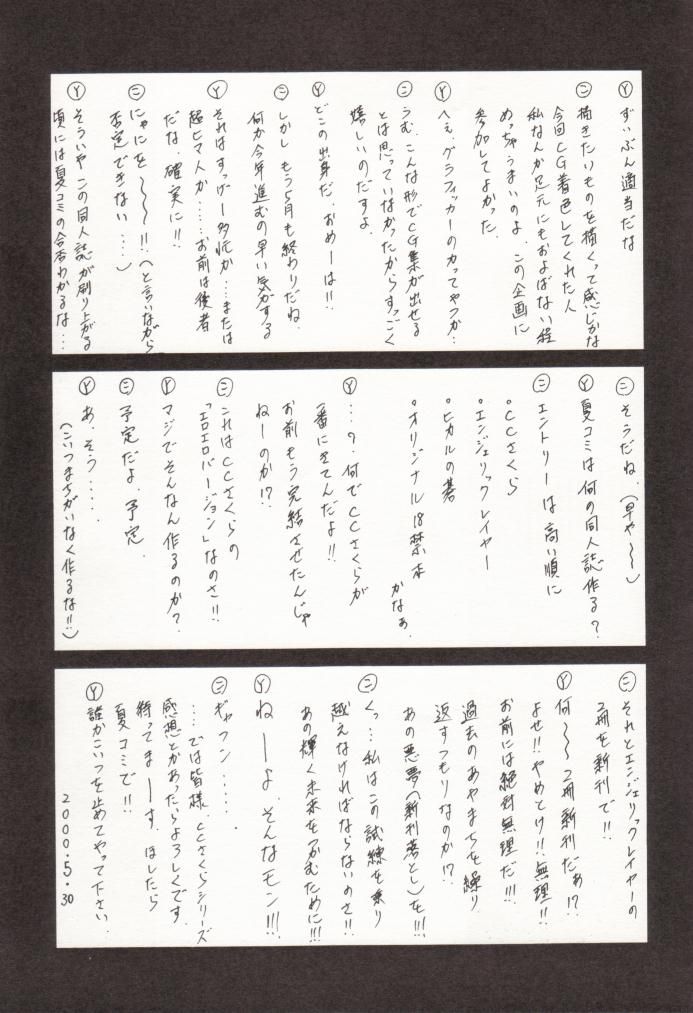 Ⓨ ずいぶん適当だな
㊁ 描きたいものを描くって感じかな
今回CG着色してくれた人
私なんか足元にもおよばない程
めっちゃうまいのよ、この企画に
参加してよかった
Ⓨ へぇ、グラフィッカーのカってやつか…
㊁ うむ、こんな形でCG集が出せる
とは思っていなかったからすっごく
嬉しいのだすよ
Ⓨ どこの出身だ おめーは!!
㊁ しかし もう5月も終わりだね、
何か今年進むの早い気がする
Ⓨ それはすっげー多忙か…または
超ヒマ人か……お前は後者
だな、確実に!!
㊁ にゃにを〜〜〜!!(と言いながら
否定できない……)
Ⓨ そういや この同人誌が刷り上がる
頃には夏コミの合否わかるな…
㊁ そうだね、(早や〜〜)
Ⓨ 夏コミは何の同人誌作る?
㊁ エントリーは高い順に
• CCさくら
• エンジェリックレイヤー
• ヒカルの碁
• オリジナル18禁本
かなぁ、
Ⓨ …?、何でCCさくらが
一番にきてんだよ!!
お前もう完結させたんじゃ
ねーのか!?
㊁ これはCCさくらの
「エロエロバージョン」なのさ!!
Ⓨ マジでそんなん作るのか?
㊁ 予定だよ、予定、
Ⓨ あ、そう……
(こいつまちがいなく作るな!!)
㊁ それとエンジェリックレイヤーの
2冊を新刊で!!
Ⓨ 何〜〜2冊新刊だぁ!?
よせ!!やめとけ!!無理!!
お前には絶対無理だ!!!
過去のあやまちを繰り
返すつもりなのか!?
あの悪夢(新刊落とし)を!!!
㊁ くっ…私はこの試練を乗り
越えなければならないのさ!!
あの輝く未来をつかむために!!!
Ⓨ ねーーよ そんなモン!!!
㊁ ギャフン……、
…では皆様、CCさくらシリーズ
感想とかあったらよろしくです
待ってまーーす、ほしたら
夏コミで!!
Ⓨ 誰かこいつを止めてやって下さい
2000.5.30